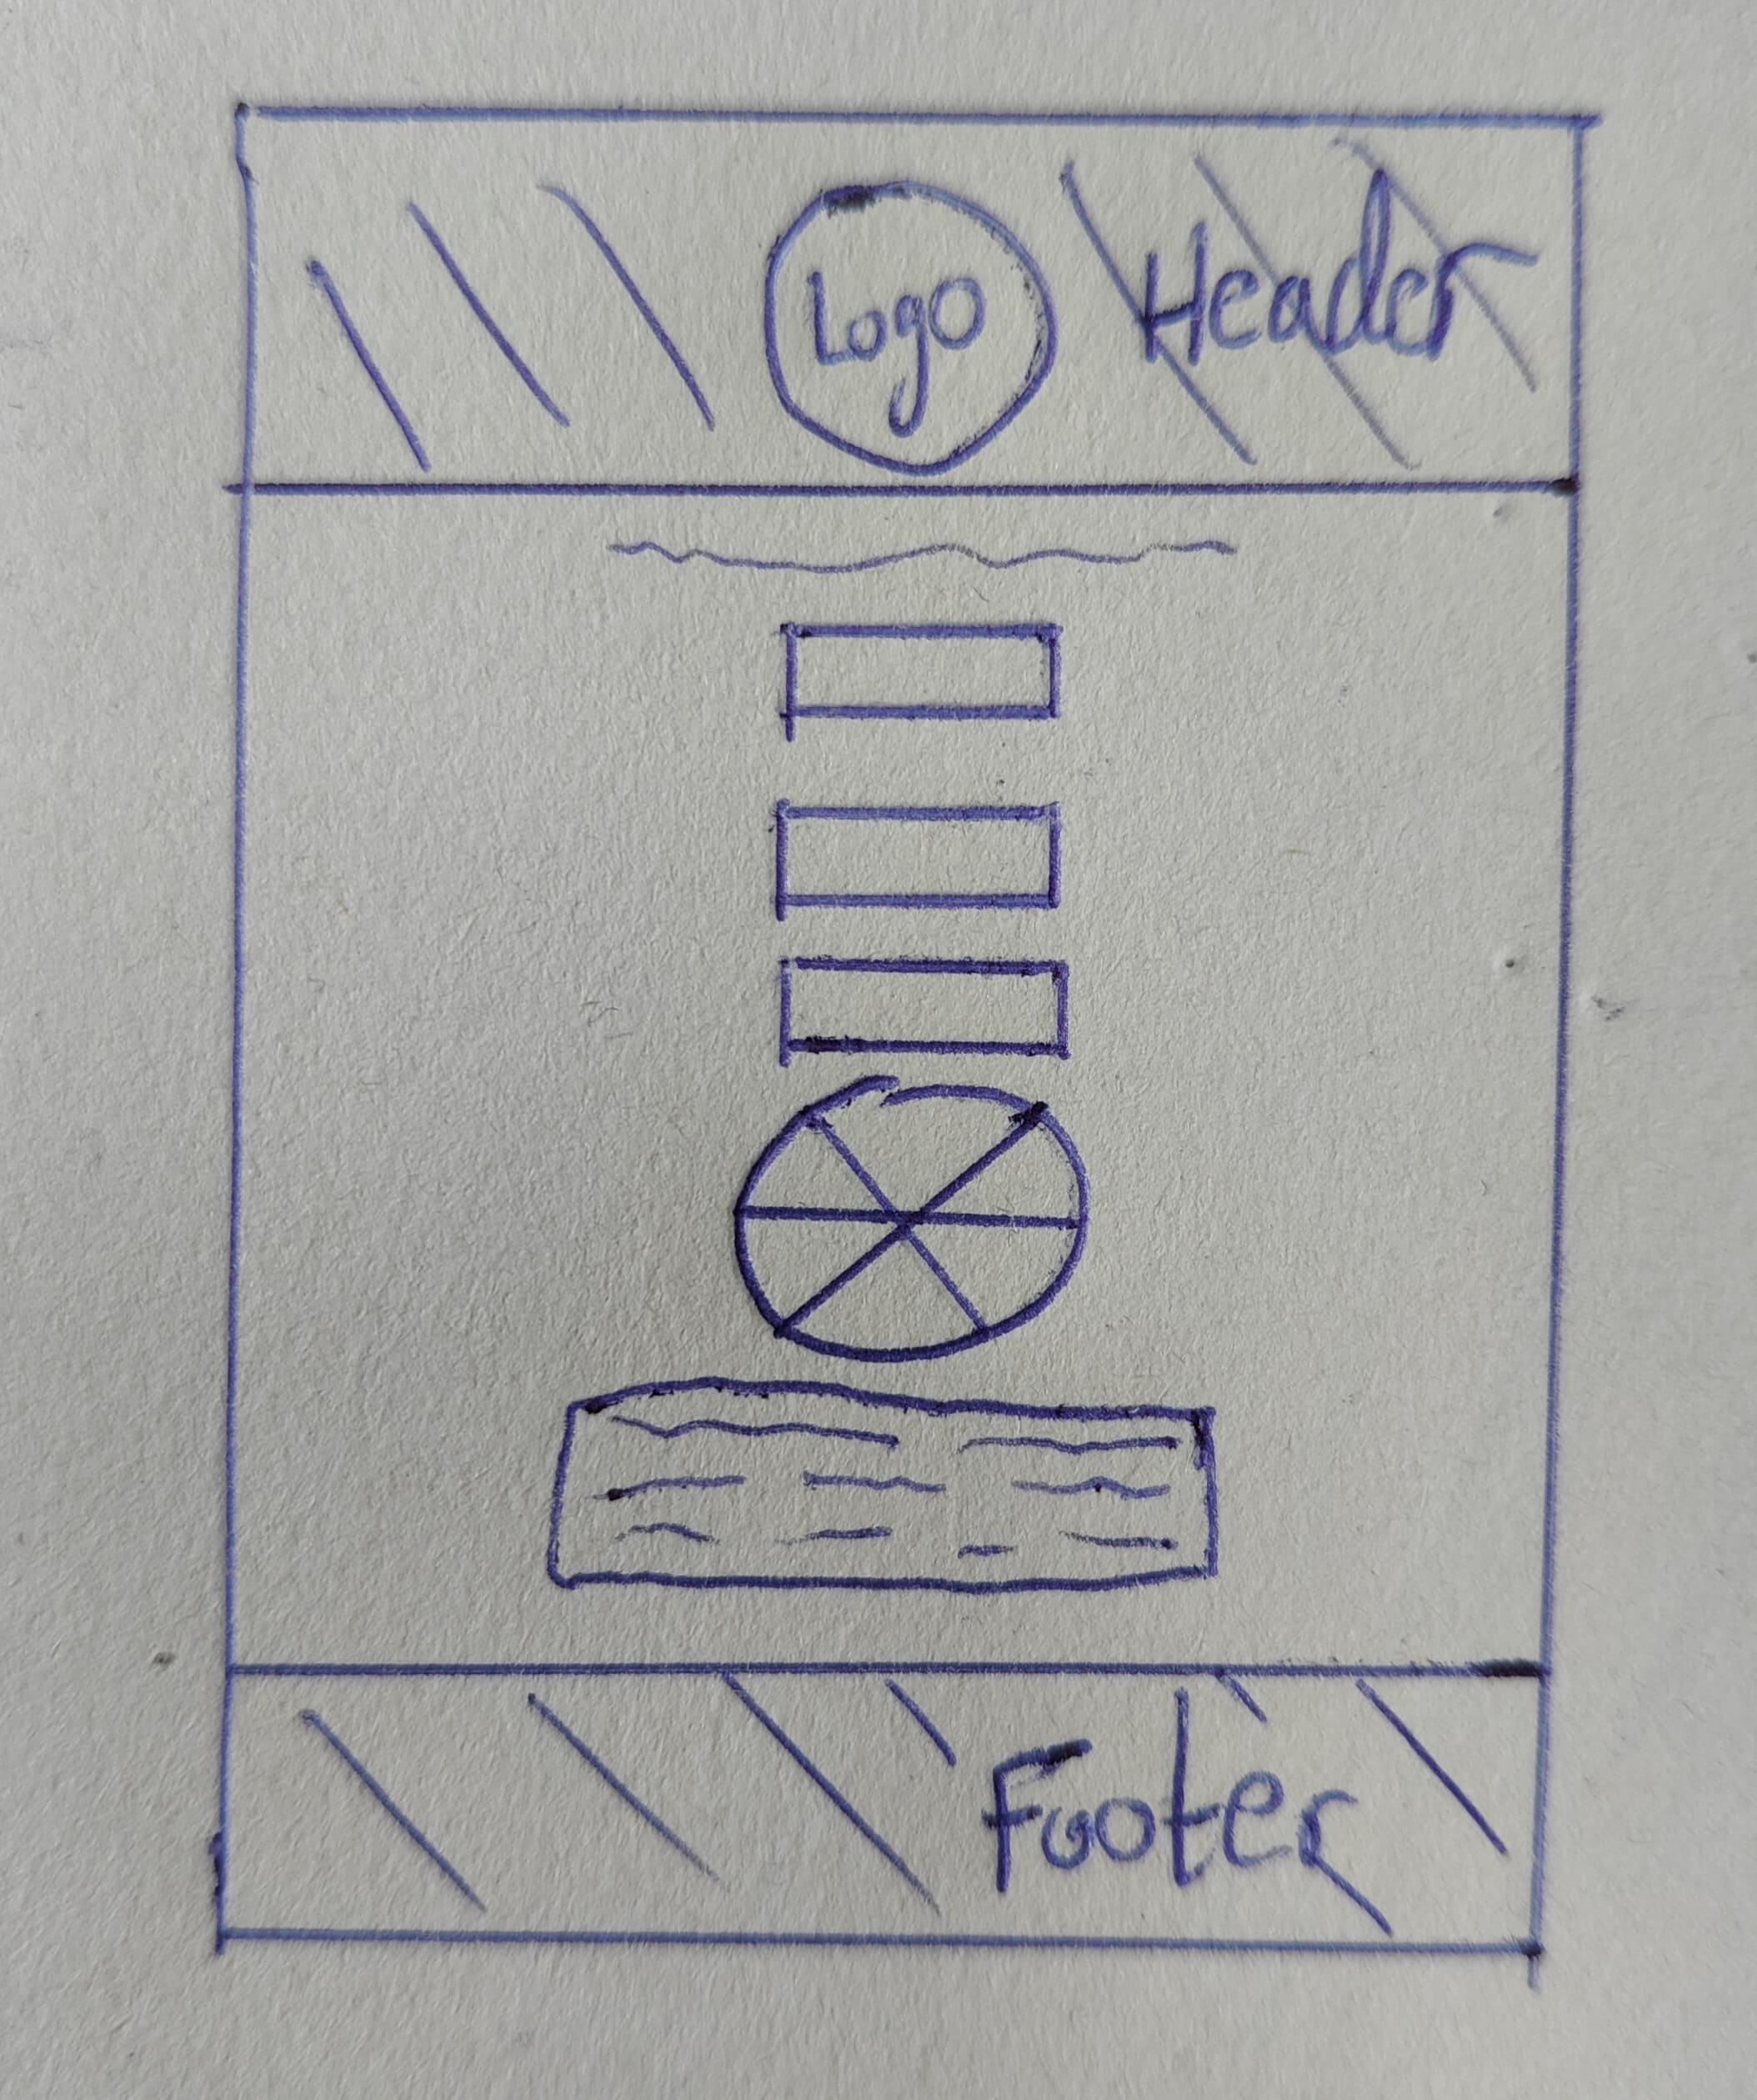 Logo
Header
Footer